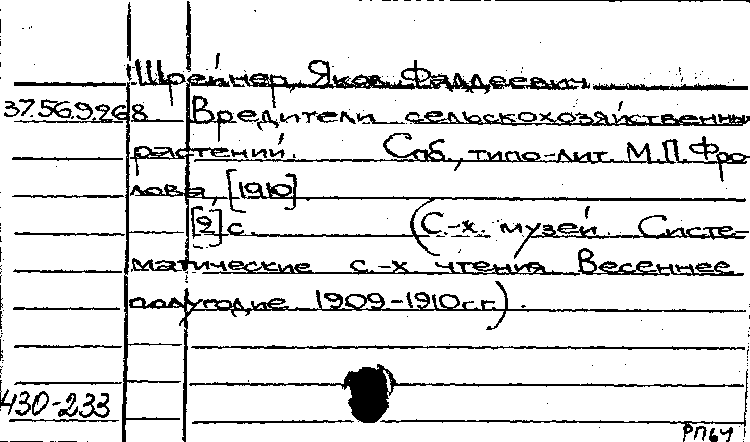 Шрейнер, Яков Фаддеевич
37.56.9.268 Вредители сельскохозяйственных
растений. Спб., типо-лит. М.П. Фро-
лова, [1910].
[2] с. (С.-х. музей. Систе-
матические с.-х чтения. Весеннее
полугодие 1909-1910 г.г.).
430-233
РП64